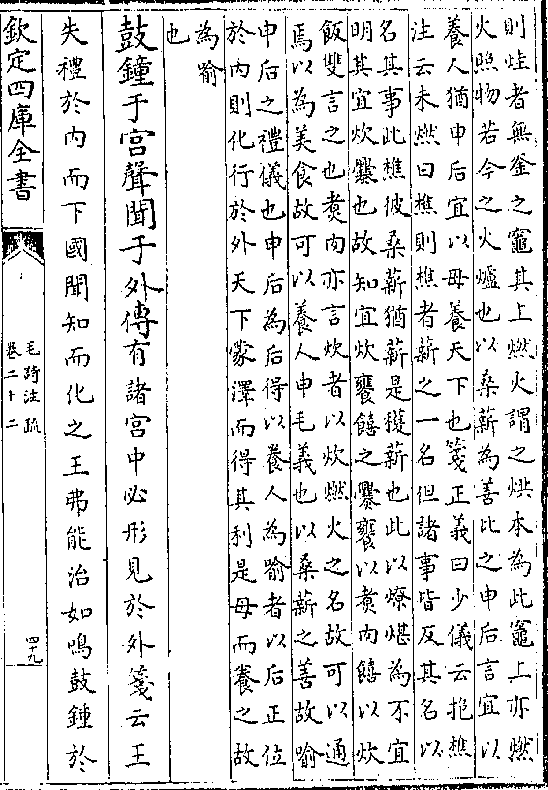 則烓者無釜之竈其上燃火謂之烘本為此竈上亦燃
火照物若今之火爐也以桑薪為善比之申后言宜以
養人猶申后宜以母養天下也箋正義曰少儀云抱樵
注云未爇曰樵則樵者薪之一名但諸事皆反其名以
名其事此樵彼桑薪猶薪是穫薪也此以燎煁為不宜
明其宜炊爨也故知宜炊饔饎之爨饔以煮肉饎以炊
飯雙言之也煮肉亦言炊者以炊燃火之名故可以通
焉以為美食故可以養人申毛義也以桑薪之善故喻
申后之禮儀也申后為后得以養人為喻者以后正位
於内則化行於外天下蒙澤而得其利是母而養之故
為喻
也
鼓鐘于宮聲聞于外傳有諸宮中必形見於外箋云王
失禮於内而下國聞知而化之王弗能治如鳴鼓鍾於
欽定四庫全書
毛詩注疏
卷二十二
四十九